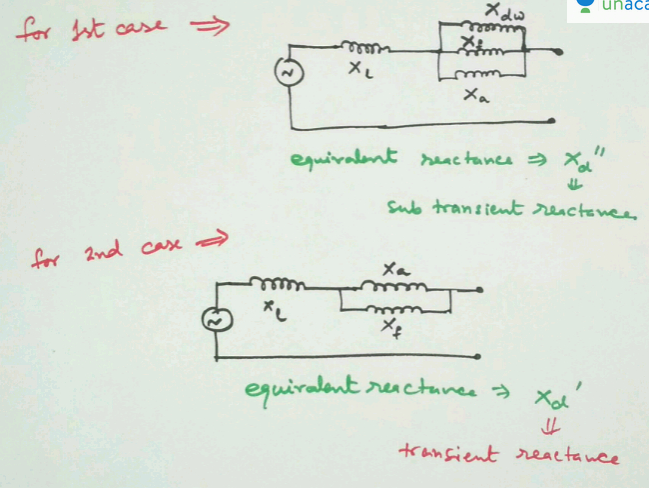 unaca
for 1st case ⇒
Xdw
Xf
Xl
Xa
equivalent reactance ⇒ Xd''
⇓
Sub transient reactance
for 2nd case ⇒
Xa
Xl
Xf
equivalent reactance → Xd'
⇓
transient reactance